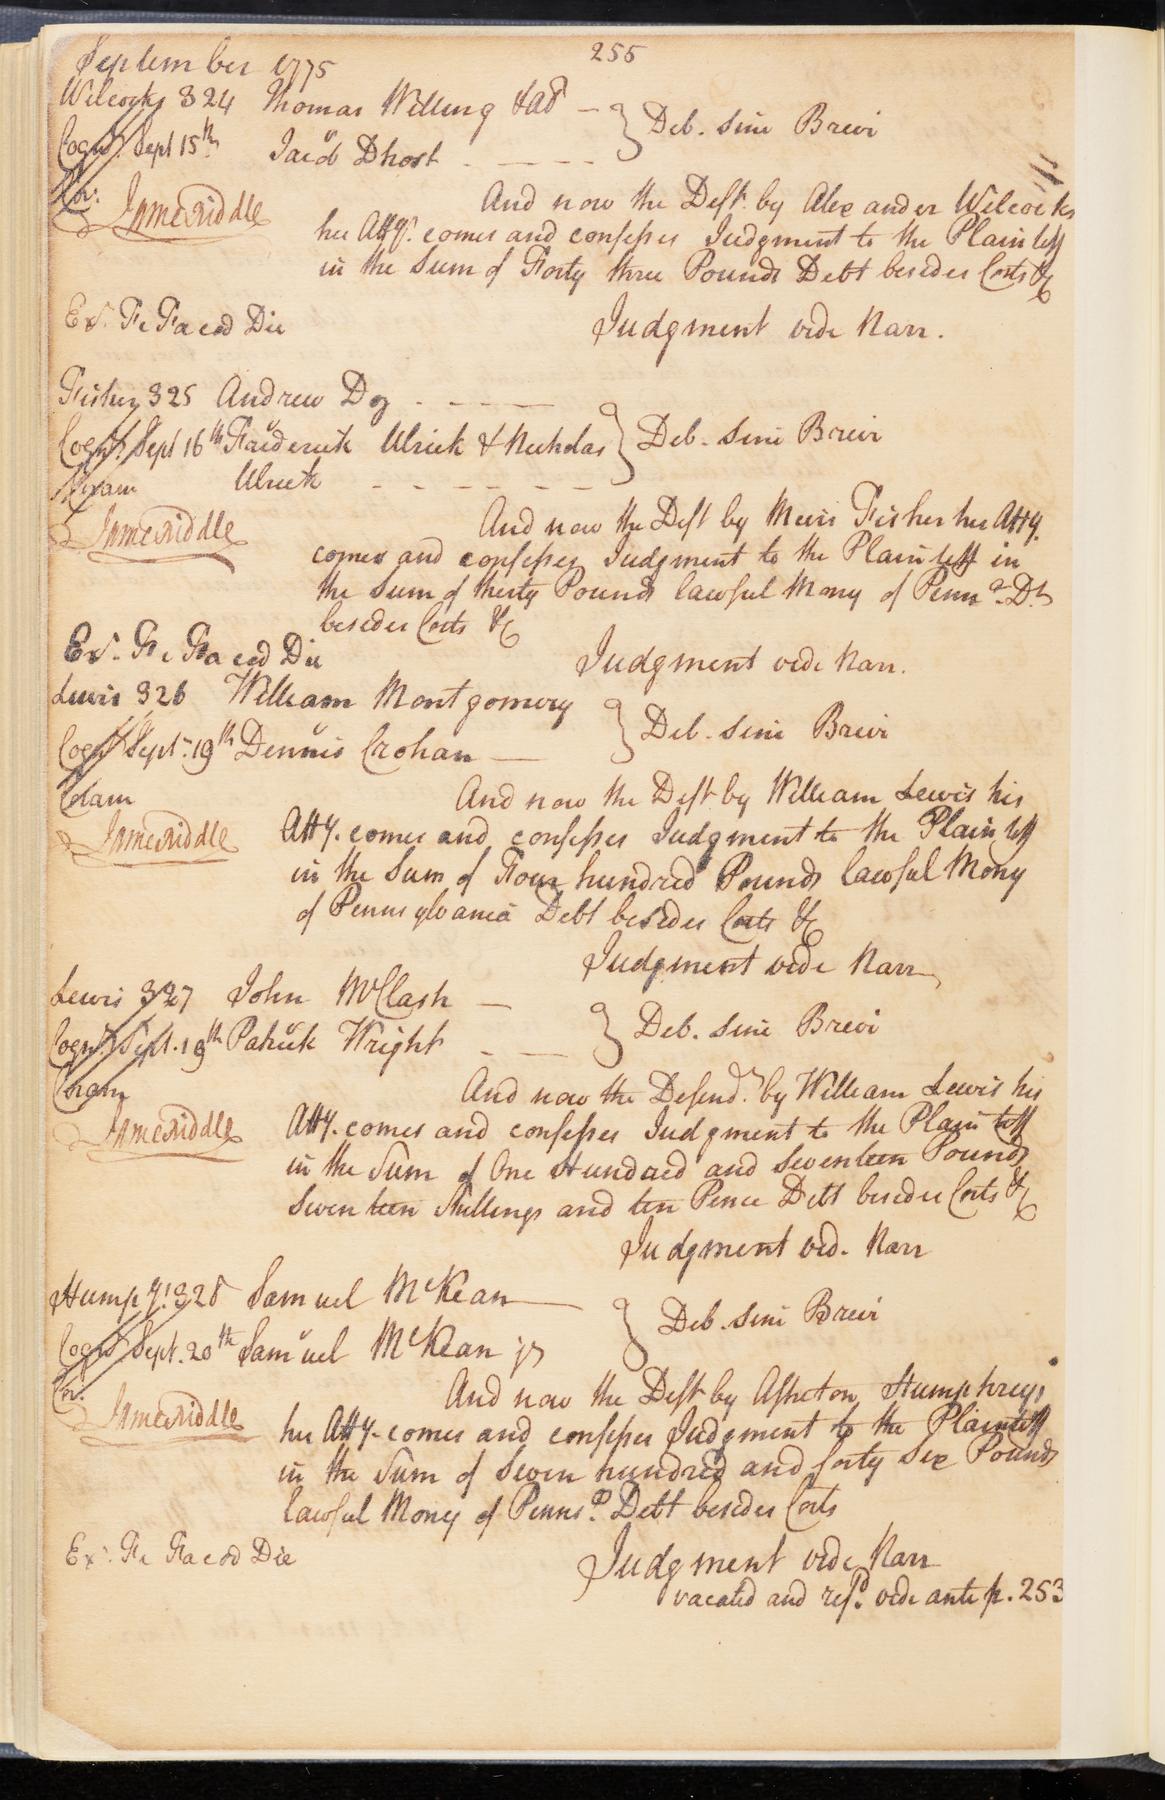 September 1775
255
Wilcocks 324 Thomas Willing & al
Deb. Sine Brevi
Cogn. Sept 15th Jacob Dhost
Cor.
JnmcRiddle
And now the Deft. by Alexander Wilcocks
his Atty. comes and confesses Judgment to the Plaintiff
in the Sum of Forty three Pounds Debt besides Costs &c
Ex. Fi Fa eod Die
Judgment vide Narr.
Fisher 325 Andrew Doz
Deb. Sine Brevi
Cogn. Sept 16th Fraederick Ulrick & Nicholas
Coram Ulrick
JnmcRiddle
And now the Deft by Miers Fisher his Atty.
comes and confesses Judgment to the Plaintiff in
the Sum of thirty Pounds lawful Mony of Penna. Dt
besides Costs &c
Ex. Fi Fa eod Die
Judgment vide Narr.
Lewis 326 William Montgomery
Deb. Sine Brevi
Cogn. Sept. 19th Dennis Crohan
Coram
JnmcRiddle
And now the Deft by William Lewis his
Atty. comes and confesses Judgment to the Plaintiff
in the Sum of Four hundred Pounds lawful Mony
of Pennsylvania Debt besides Costs &c
Judgment vide Narr
Lewis 327 John McClash
Deb. Sine Brevi
Cogn. Sept. 19th Patrick Wright
Coram
JnmcRiddle
And now the Defend. by William Lewis his
Atty. comes and confesses Judgment to the Plaintiff
in the Sum of One Hundred and Seventeen Pounds
Seventeen Shillings and ten Pence Debt besides Costs &c
Judgment vid. Narr
Humpys. 328 Samuel McKean
Deb. Sine Brevi
Cogn. Sept. 20th Samuel McKean jr
Cor.
JnmcRiddle
And now the Deft by Assheton Humphreys
his Atty. comes and confesses Judgment to the Plaintiff
in the Sum of Seven hundred and forty Six Pounds
lawful Mony of Penns.a Debt besides Costs
Ex. Fi Fa eod Die
Judgment vide Narr
vacated and resd. vide ante p. 253